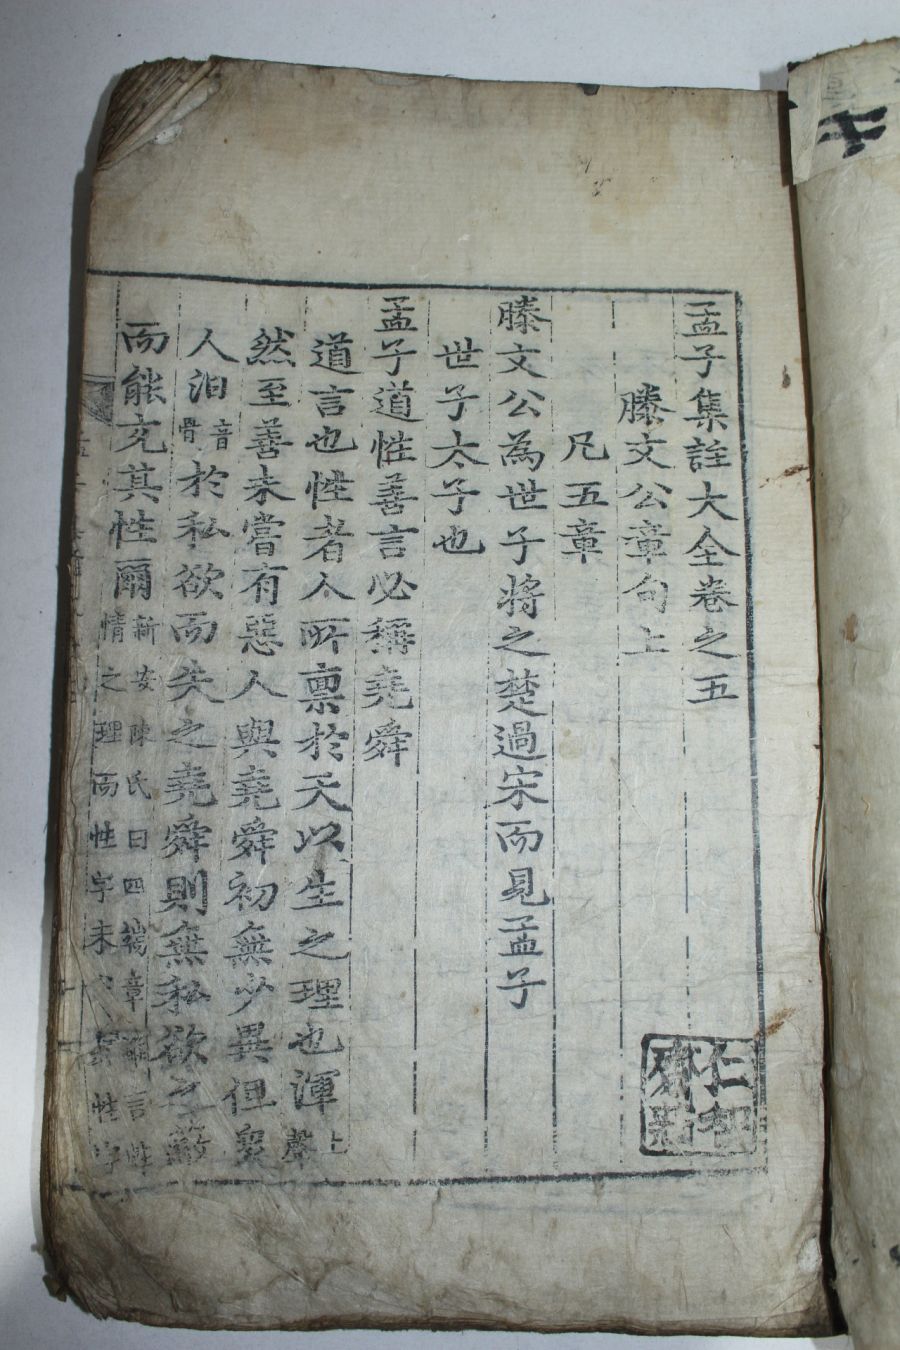 孟子集註大全卷之五
滕文公章句上
凡五章
滕文公為世子將之楚過宋而見孟子
世子太子也
孟子道性善言必稱堯舜
道言也性者人所稟於天以生之理也渾上聲
然至善未嘗有惡人與堯舜初無少異但衆
人汨音骨於私欲而失之堯舜則無私欲之蔽
而能充其性爾新安陳氏曰四端章雖言性
情之理而性字未
仁
齋